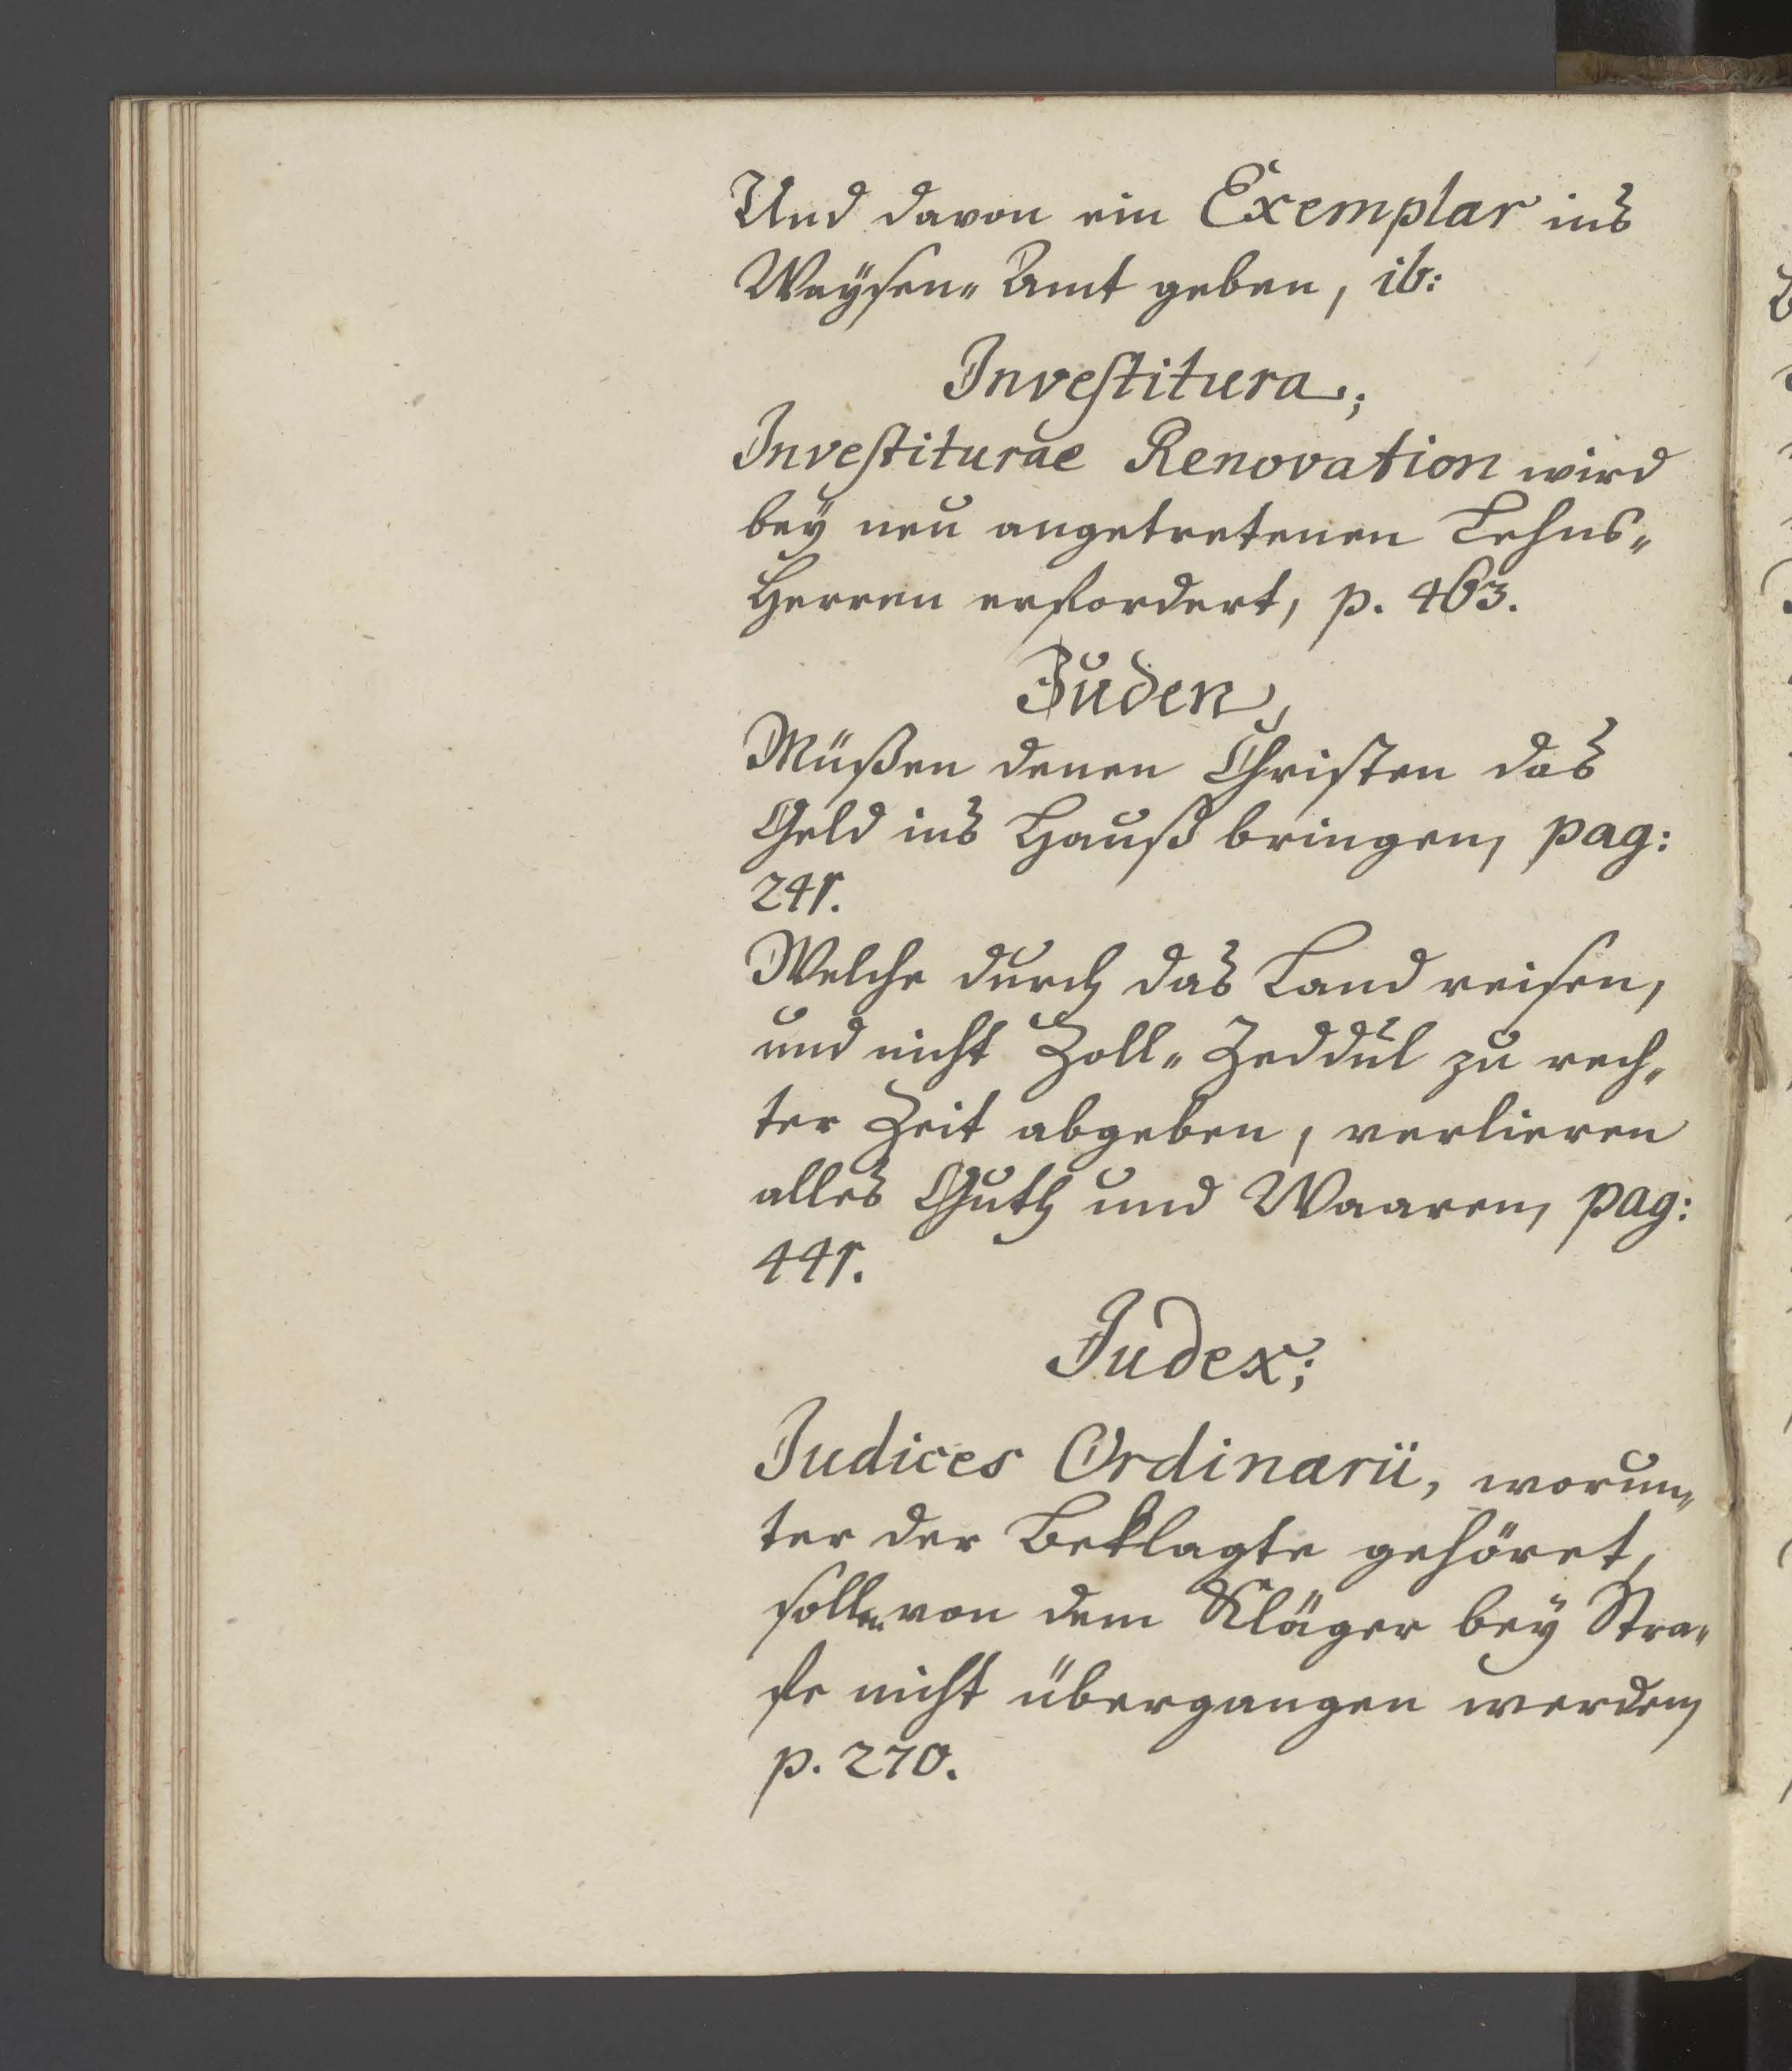 Und davon ein Exemplar ins
Waysen-Amt geben, ib:
Investitura;
Investiturae Renovation wird
bey neu angetretenen Lehns-
Herren erfordert, p. 463.
Juden,
Müßen denen Christen das
Geld ins Hauß bringen, pag:
241.
Welche durch das Land reisen,
und nicht Zoll-Zeddul zu rech-
ter Zeit abgeben, verlieren
alles Guth und Waaren, pag:
441.
Judex;
Judices Ordinarii, worun-
ter der Beklagte gehöret,
sollen von dem Kläger bey Stra-
fe nicht übergangen werden,
p. 270.